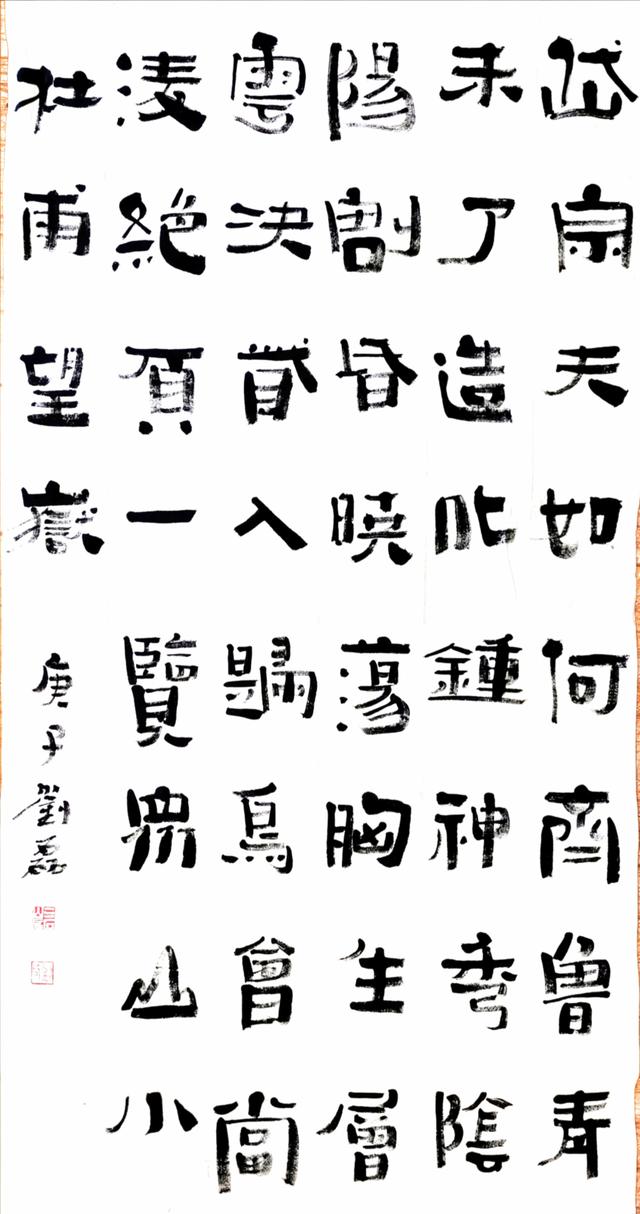 岱宗夫如何齊魯青
未了造化鍾神秀陰
陽割昏曉蕩胸生層
雲決眥入歸鳥曾當
淩絕頂一覽眾山小
杜甫望嶽 庚子劉磊